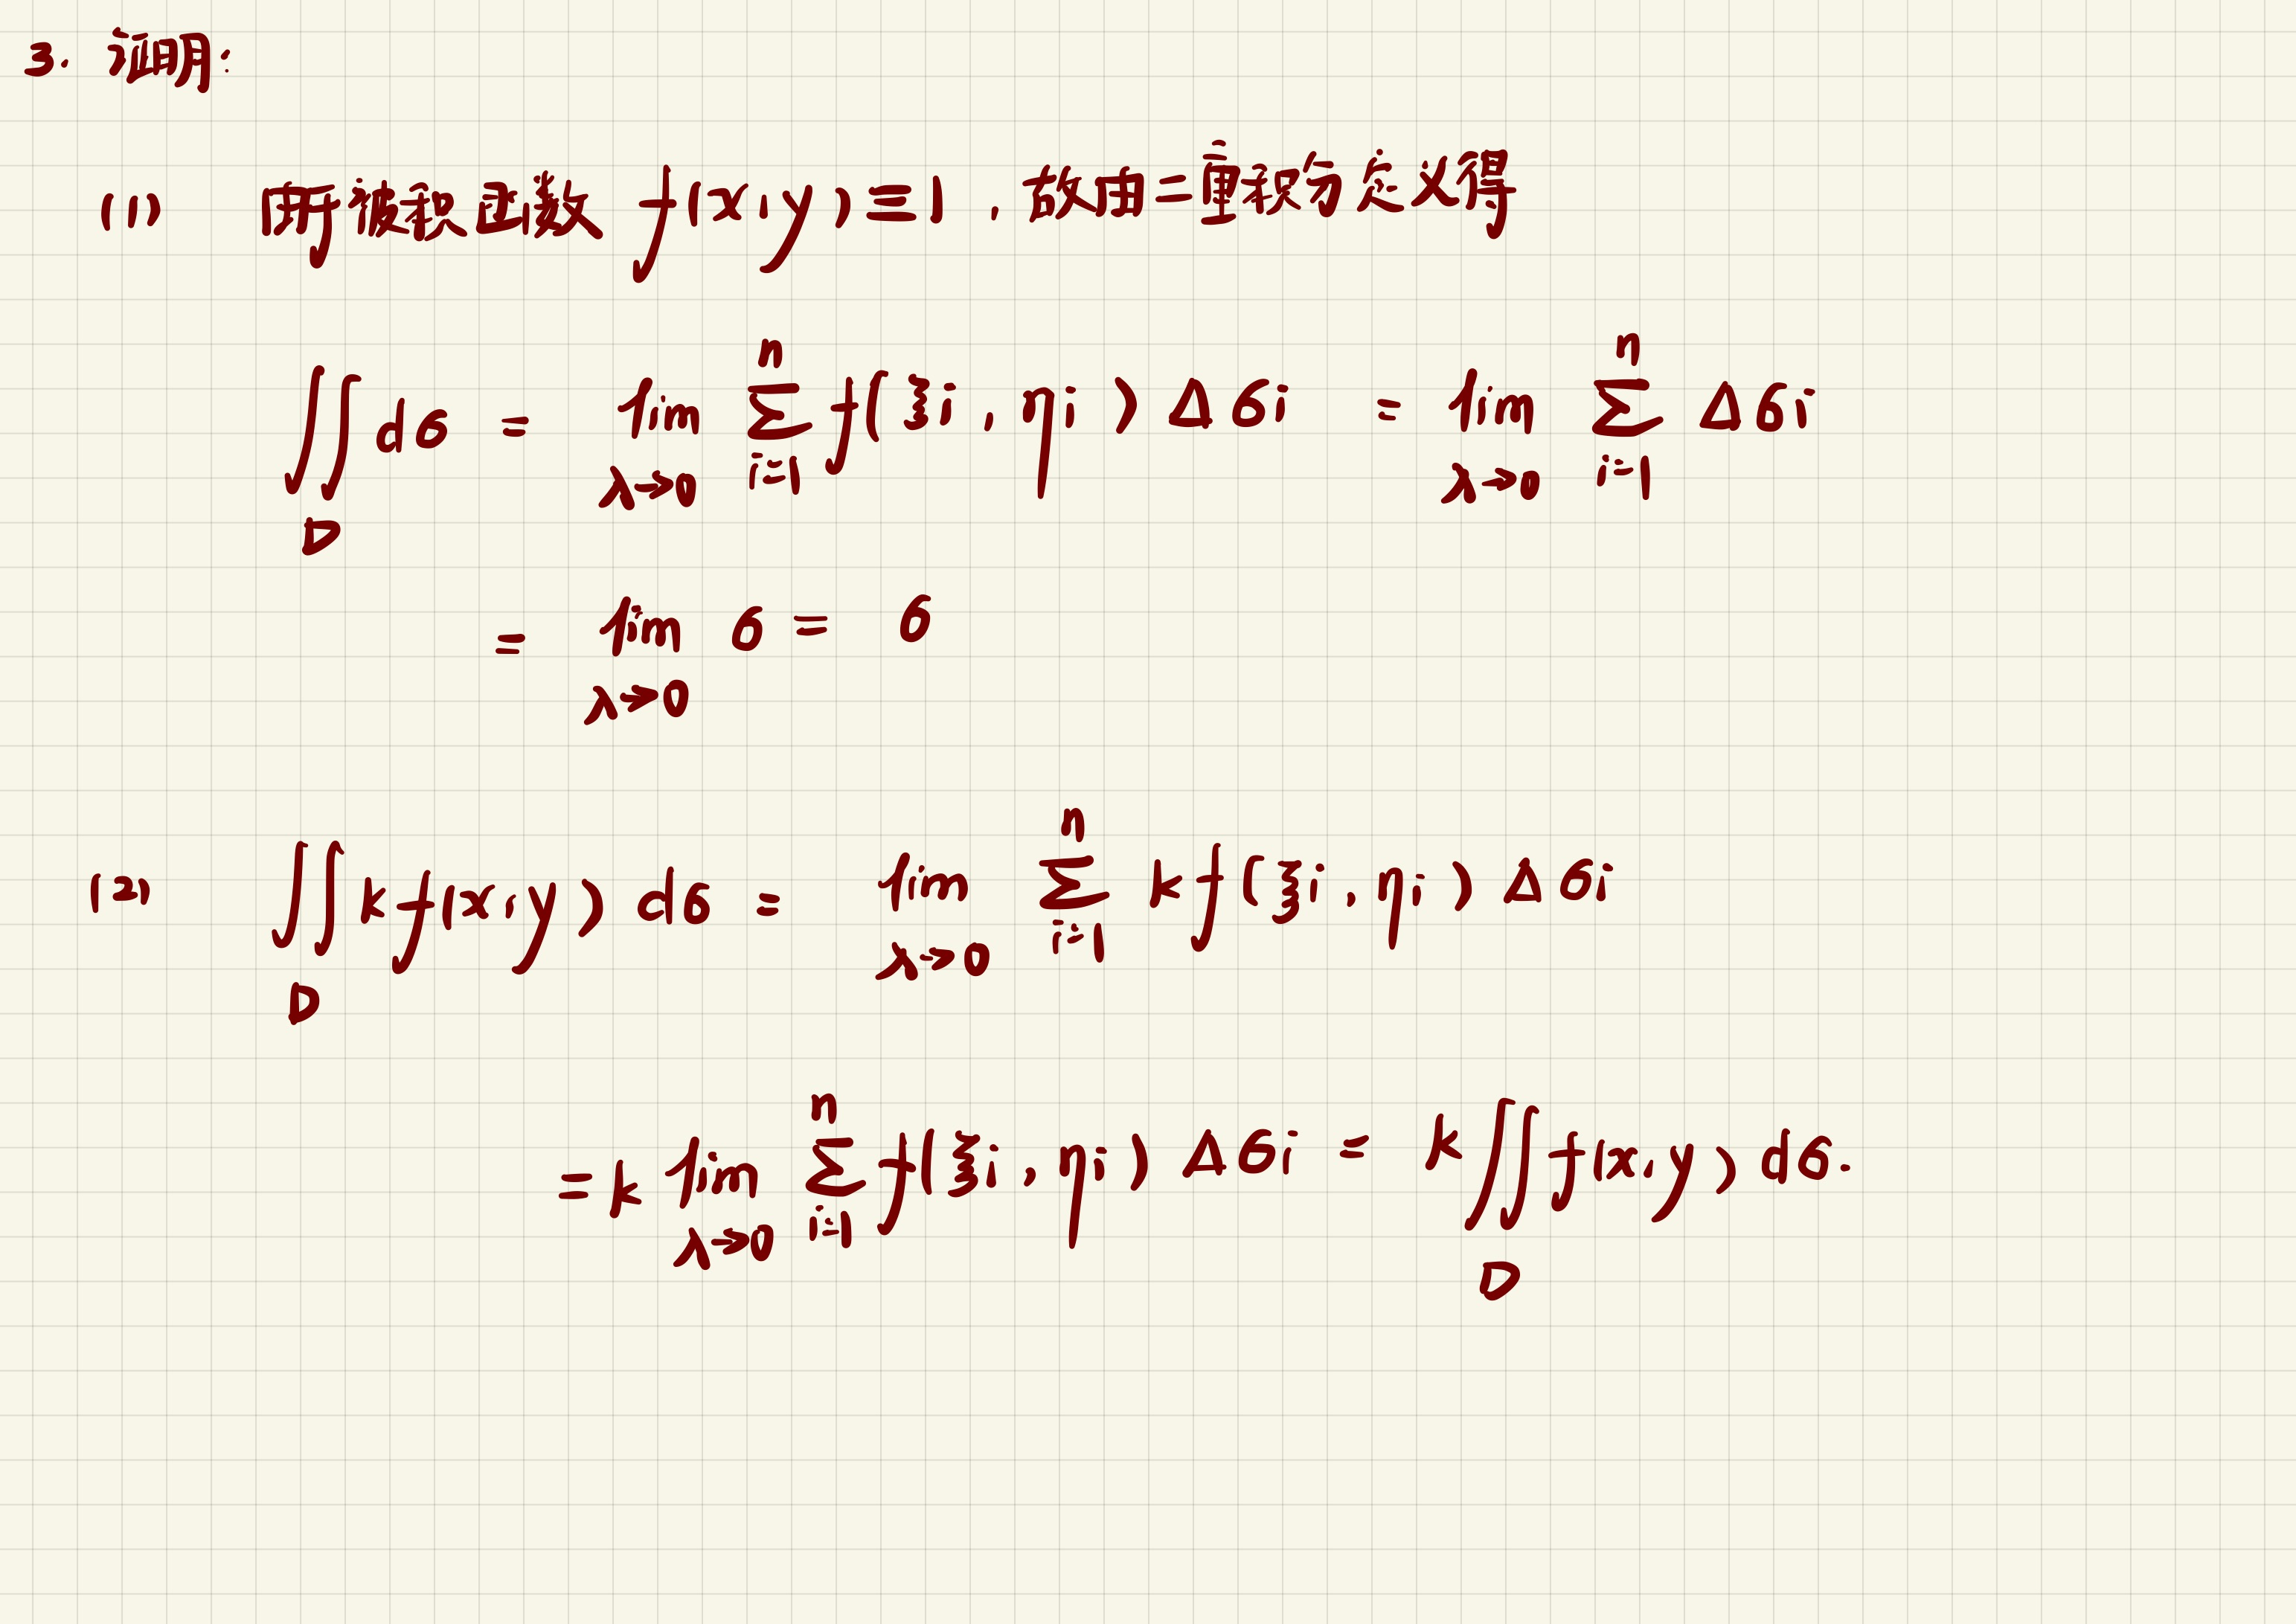 3. 证明:
(1) 由于被积函数 f(x,y)≡1, 故由二重积分定义得
∬_D dσ = lim_{λ→0} ∑_{i=1}^{n} f(ξi, ηi) Δσi = lim_{λ→0} ∑_{i=1}^{n} Δσi
= lim_{λ→0} σ = σ
(2) ∬_D kf(x,y) dσ = lim_{λ→0} ∑_{i=1}^{n} kf(ξi, ηi) Δσi
= k lim_{λ→0} ∑_{i=1}^{n} f(ξi, ηi) Δσi = k∬_D f(x,y) dσ.